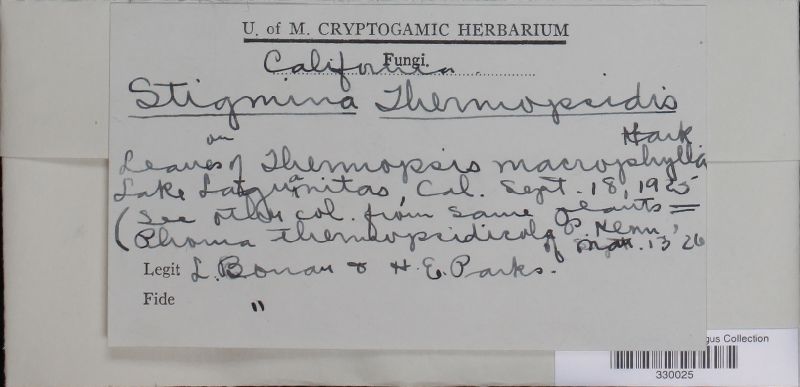 U. of M. CRYPTOGAMIC HERBARIUM
Fungi.
California.
Stigmina Thermopsidis
Hark
on
Leaves of Thermopsis macrophylla
Lake Lagunitas, Cal. Sept. 18, 1925
(See other col. from same plants =
(Phoma thermopsidicola P. Henn.
of Mar. 13 '26
Legit L. Bonar & H. E. Parks.
Fide "
gus Collection
330025